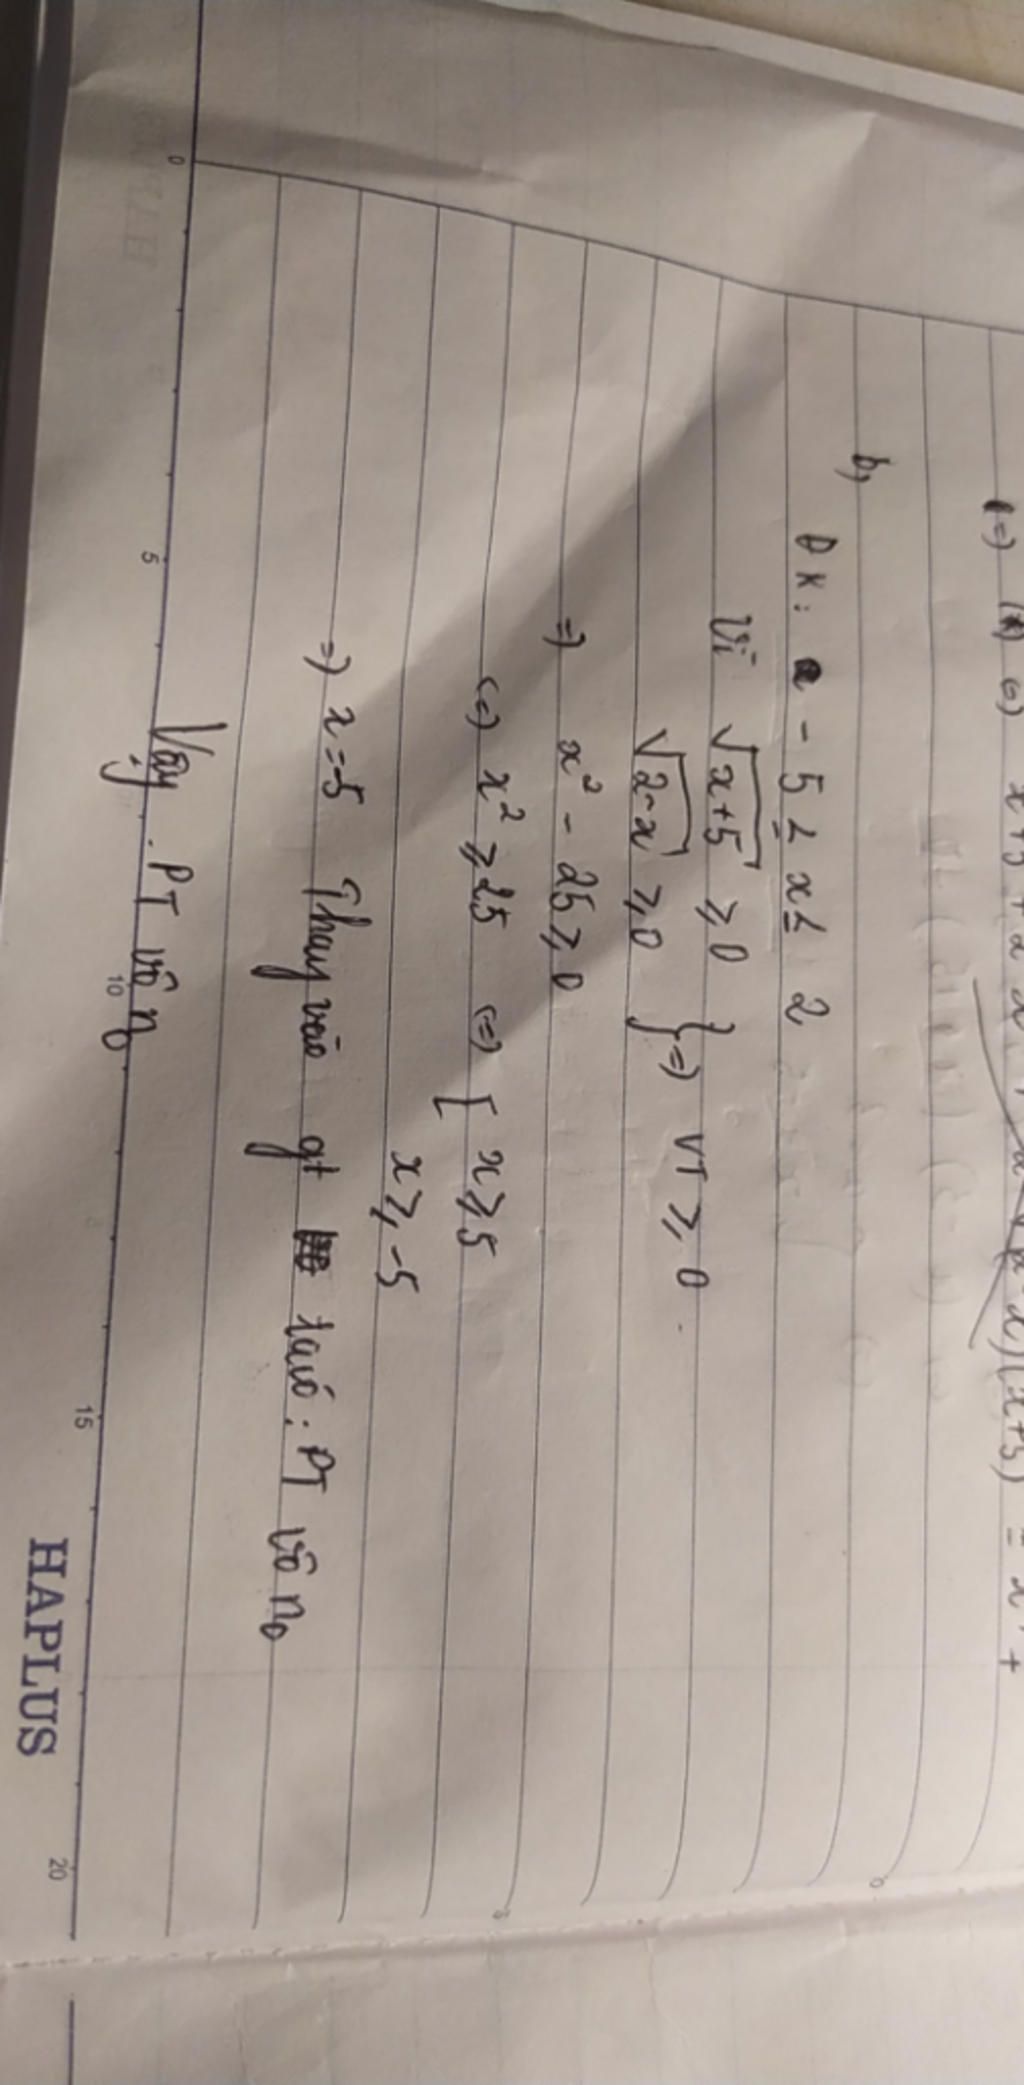 (=) (*) (=) x+5+2 (x+5) = x +
b,
ĐK: -5 ≤ x ≤ 2
Vì √x+5 ≥ 0
√2-x ≥ 0 } => VT ≥ 0
=> x² - 25 ≥ 0
(=) x² ≥ 25 (=) [ x ≥ 5
x ≥ -5
=> x = -5 Thay vào gt tacó: PT vô n₀
Vậy. PT vô n₀
0 5 10 15 20
HAPLUS